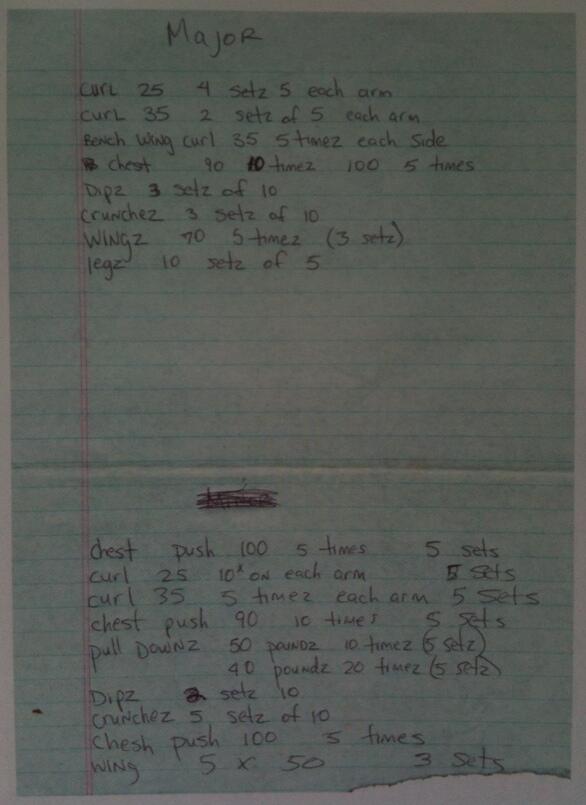 Major
curl 25 4 setz 5 each arm
curl 35 2 setz of 5 each arm
Bench wing curl 35 5 timez each side
chest 90 10 timez 100 5 times
Dipz 3 setz of 10
crunchez 3 setz of 10
wingz 70 5 timez (3 setz)
legz 10 setz of 5
chest push 100 5 times 5 sets
curl 25 10x on each arm 5 sets
curl 35 5 timez each arm 5 sets
chest push 90 10 times 5 sets
pull Downz 50 poundz 10 timez (5 setz)
40 poundz 20 timez (5 setz)
Dipz 2 setz 10
crunchez 5 setz of 10
Chesh push 100 5 times
wing 5 x 50 3 sets